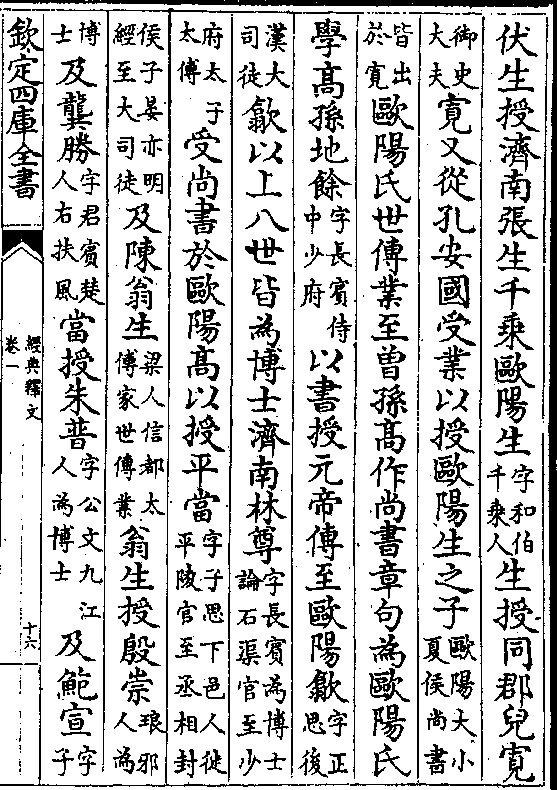 伏生授濟南張生千乗歐陽生字和伯千乗人生授同郡兒寛
御史大夫寛又從孔安國受業以授歐陽生之子歐陽大小夏侯尚書
皆出於寛歐陽氏世傳業至曽孫髙作尚書章句為歐陽氏
學髙孫地餘字長賓侍中少府以書授元帝傳至歐陽歙字正思後
漢大司徒歙以上八世皆為博士濟南林尊字長賓為博士論石渠官至少
府太子太傅受尚書於歐陽髙以授平當字子思下邑人徙平陵官至丞相封
侯子晏亦明經至大司徒及陳翁生梁人信都太傅家世傳業翁生授殷崇琅邪人為
博士及龔勝字君賓楚人右扶風當授朱普字公文九江人為博士及鮑宣字子
欽定四庫全書
經典釋文
卷一
十六